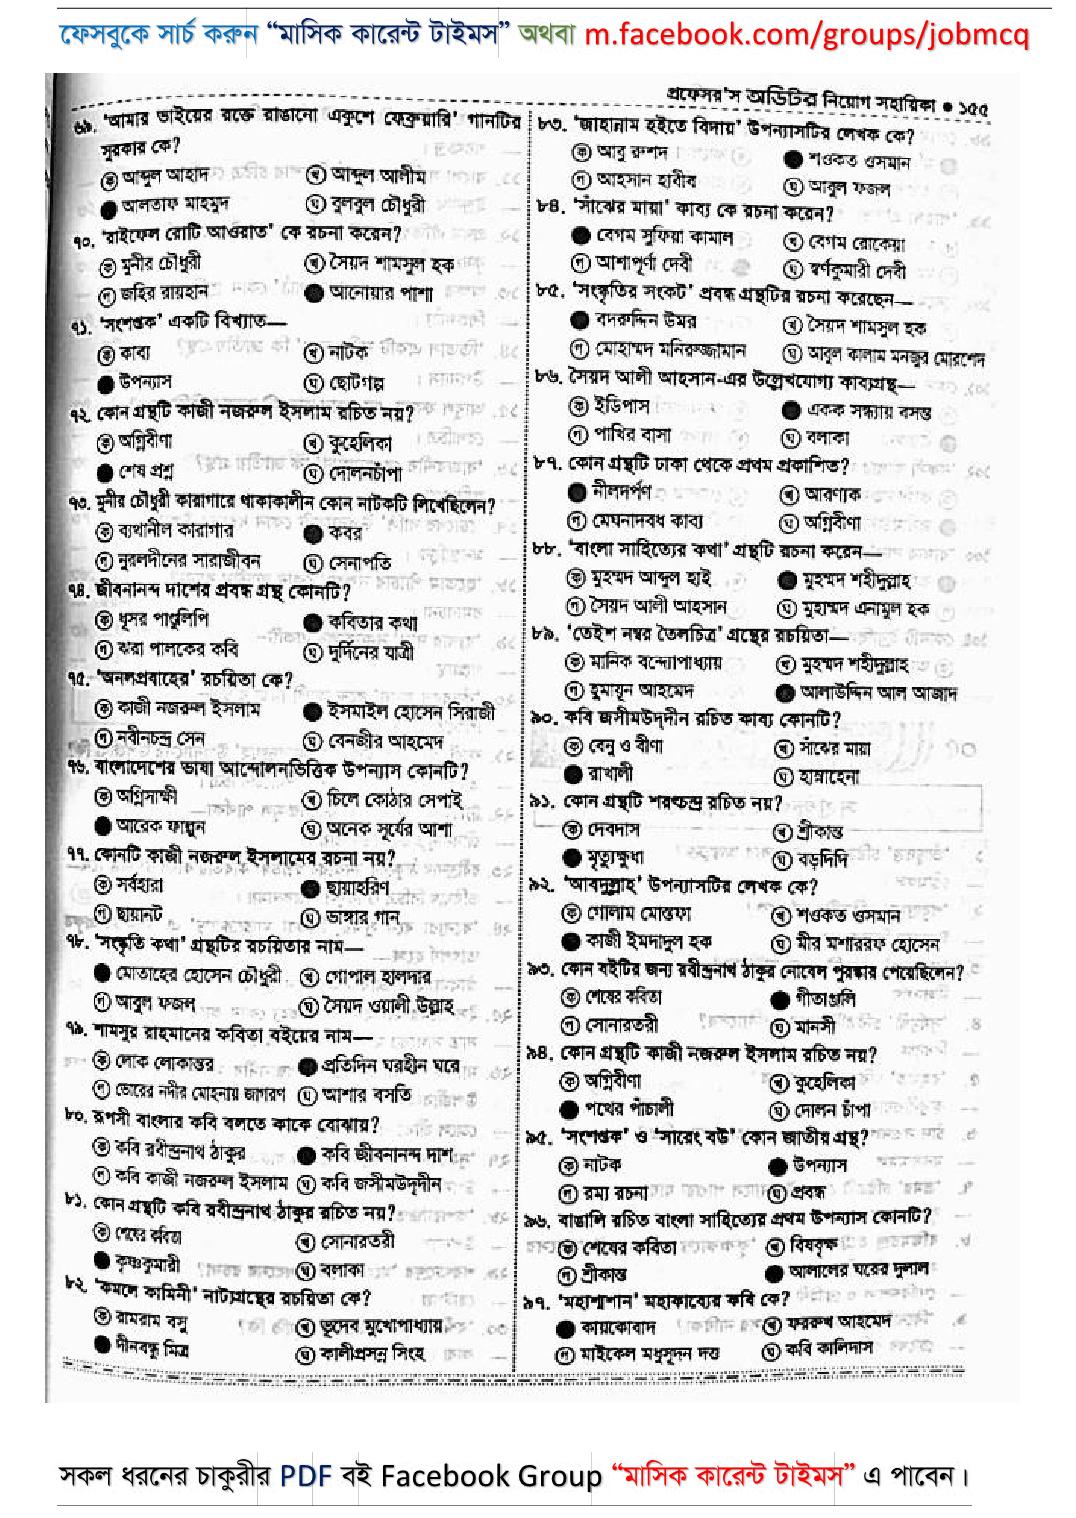 ফেসবুকে সার্চ করুন “মাসিক কারেন্ট টাইমস” অথবা m.facebook.com/groups/jobmcq
প্রফেসর'স অডিটর নিয়োগ সহায়িকা ● ১৫৫
৬৯. 'আমার ভাইয়ের রক্তে রাঙানো একুশে ফেব্রুয়ারি' গানটির
সুরকার কে?
ক আব্দুল আহাদ খ আব্দুল আলীম
● আলতাফ মাহমুদ ঘ বুলবুল চৌধুরী
৭০. 'রাইফেল রোটি আওরাত' কে রচনা করেন?
ক মুনীর চৌধুরী খ সৈয়দ শামসুল হক
গ জহির রায়হান ● আনোয়ার পাশা
৭১. 'সংশপ্তক' একটি বিখ্যাত—
ক কাব্য খ নাটক
● উপন্যাস ঘ ছোটগল্প
৭২. কোন গ্রন্থটি কাজী নজরুল ইসলাম রচিত নয়?
ক অগ্নিবীণা খ কুহেলিকা
● শেষ প্রশ্ন ঘ দোলনচাঁপা
৭৩. মুনীর চৌধুরী কারাগারে থাকাকালীন কোন নাটকটি লিখেছিলেন?
ক ব্যথানীল কারাগার ● কবর
গ নুরলদীনের সারাজীবন ঘ সেনাপতি
৭৪. জীবনানন্দ দাশের প্রবন্ধ গ্রন্থ কোনটি?
ক ধূসর পাণ্ডুলিপি ● কবিতার কথা
গ ঝরা পালকের কবি ঘ দুর্দিনের যাত্রী
৭৫. 'অনলপ্রবাহের' রচয়িতা কে?
ক কাজী নজরুল ইসলাম ● ইসমাইল হোসেন সিরাজী
গ নবীনচন্দ্র সেন ঘ বেনজীর আহমেদ
৭৬. বাংলাদেশের ভাষা আন্দোলনভিত্তিক উপন্যাস কোনটি?
ক অগ্নিসাক্ষী খ চিলে কোঠার সেপাই
● আরেক ফাল্গুন ঘ অনেক সূর্যের আশা
৭৭. কোনটি কাজী নজরুল ইসলামের রচনা নয়?
ক সর্বহারা ● ছায়াহরিণ
গ ছায়ানট ঘ ভাঙ্গার গান
৭৮. 'সংস্কৃতি কথা' গ্রন্থটির রচয়িতার নাম—
● মোতাহের হোসেন চৌধুরী খ গোপাল হালদার
গ আবুল ফজল ঘ সৈয়দ ওয়ালী উল্লাহ
৭৯. শামসুর রাহমানের কবিতা বইয়ের নাম—
ক লোক লোকান্তর ● প্রতিদিন ঘরহীন ঘরে
গ ভোরের নদীর মোহনায় জাগরণ ঘ আশার বসতি
৮০. রূপসী বাংলার কবি বলতে কাকে বোঝায়?
ক কবি রবীন্দ্রনাথ ঠাকুর ● কবি জীবনানন্দ দাশ
গ কবি কাজী নজরুল ইসলাম ঘ কবি জসীমউদ্‌দীন
৮১. কোন গ্রন্থটি কবি রবীন্দ্রনাথ ঠাকুর রচিত নয়?
ক শেষের কবিতা খ সোনারতরী
● কৃষ্ণকুমারী ঘ বলাকা
৮২. 'কমলে কামিনী' নাট্যগ্রন্থের রচয়িতা কে?
ক রামরাম বসু খ ভূদেব মুখোপাধ্যায়
● দীনবন্ধু মিত্র ঘ কালীপ্রসন্ন সিংহ
৮৩. 'জাহান্নাম হইতে বিদায়' উপন্যাসটির লেখক কে?
ক আবু রুশদ ● শওকত ওসমান
গ আহসান হাবীব ঘ আবুল ফজল
৮৪. 'সাঁঝের মায়া' কাব্য কে রচনা করেন?
● বেগম সুফিয়া কামাল খ বেগম রোকেয়া
গ আশাপূর্ণা দেবী ঘ স্বর্ণকুমারী দেবী
৮৫. 'সংস্কৃতির সংকট' প্রবন্ধ গ্রন্থটির রচনা করেছেন—
● বদরুদ্দিন উমর খ সৈয়দ শামসুল হক
গ মোহাম্মদ মনিরুজ্জামান ঘ আবুল কালাম মনজুর মোরশেদ
৮৬. সৈয়দ আলী আহসান-এর উল্লেখযোগ্য কাব্যগ্রন্থ—
ক ইডিপাস ● একক সন্ধ্যায় বসন্ত
গ পাখির বাসা ঘ বলাকা
৮৭. কোন গ্রন্থটি ঢাকা থেকে প্রথম প্রকাশিত?
● নীলদর্পণ খ আরণ্যক
গ মেঘনাদবধ কাব্য ঘ অগ্নিবীণা
৮৮. 'বাংলা সাহিত্যের কথা' গ্রন্থটি রচনা করেন—
ক মুহম্মদ আব্দুল হাই ● মুহম্মদ শহীদুল্লাহ
গ সৈয়দ আলী আহসান ঘ মুহাম্মদ এনামুল হক
৮৯. 'তেইশ নম্বর তৈলচিত্র' গ্রন্থের রচয়িতা—
ক মানিক বন্দ্যোপাধ্যায় খ মুহম্মদ শহীদুল্লাহ
গ হুমায়ূন আহমেদ ● আলাউদ্দিন আল আজাদ
৯০. কবি জসীমউদ্‌দীন রচিত কাব্য কোনটি?
ক বেনু ও বীণা খ সাঁঝের মায়া
● রাখালী ঘ হাস্নাহেনা
৯১. কোন গ্রন্থটি শরৎচন্দ্র রচিত নয়?
ক দেবদাস খ শ্রীকান্ত
● মৃত্যুক্ষুধা ঘ বড়দিদি
৯২. 'আবদুল্লাহ' উপন্যাসটির লেখক কে?
ক গোলাম মোস্তফা খ শওকত ওসমান
● কাজী ইমদাদুল হক ঘ মীর মশাররফ হোসেন
৯৩. কোন বইটির জন্য রবীন্দ্রনাথ ঠাকুর নোবেল পুরস্কার পেয়েছিলেন?
ক শেষের কবিতা ● গীতাঞ্জলি
গ সোনারতরী ঘ মানসী
৯৪. কোন গ্রন্থটি কাজী নজরুল ইসলাম রচিত নয়?
ক অগ্নিবীণা খ কুহেলিকা
● পথের পাঁচালী ঘ দোলন চাঁপা
৯৫. 'সংশপ্তক' ও 'সারেং বউ' কোন জাতীয় গ্রন্থ?
ক নাটক ● উপন্যাস
গ রম্য রচনা ঘ প্রবন্ধ
৯৬. বাঙালি রচিত বাংলা সাহিত্যের প্রথম উপন্যাস কোনটি?
ক শেষের কবিতা খ বিষবৃক্ষ
গ শ্রীকান্ত ● আলালের ঘরের দুলাল
৯৭. 'মহাশ্মশান' মহাকাব্যের কবি কে?
● কায়কোবাদ খ ফররুখ আহমেদ
গ মাইকেল মধুসূদন দত্ত ঘ কবি কালিদাস
সকল ধরনের চাকুরীর PDF বই Facebook Group “মাসিক কারেন্ট টাইমস” এ পাবেন।